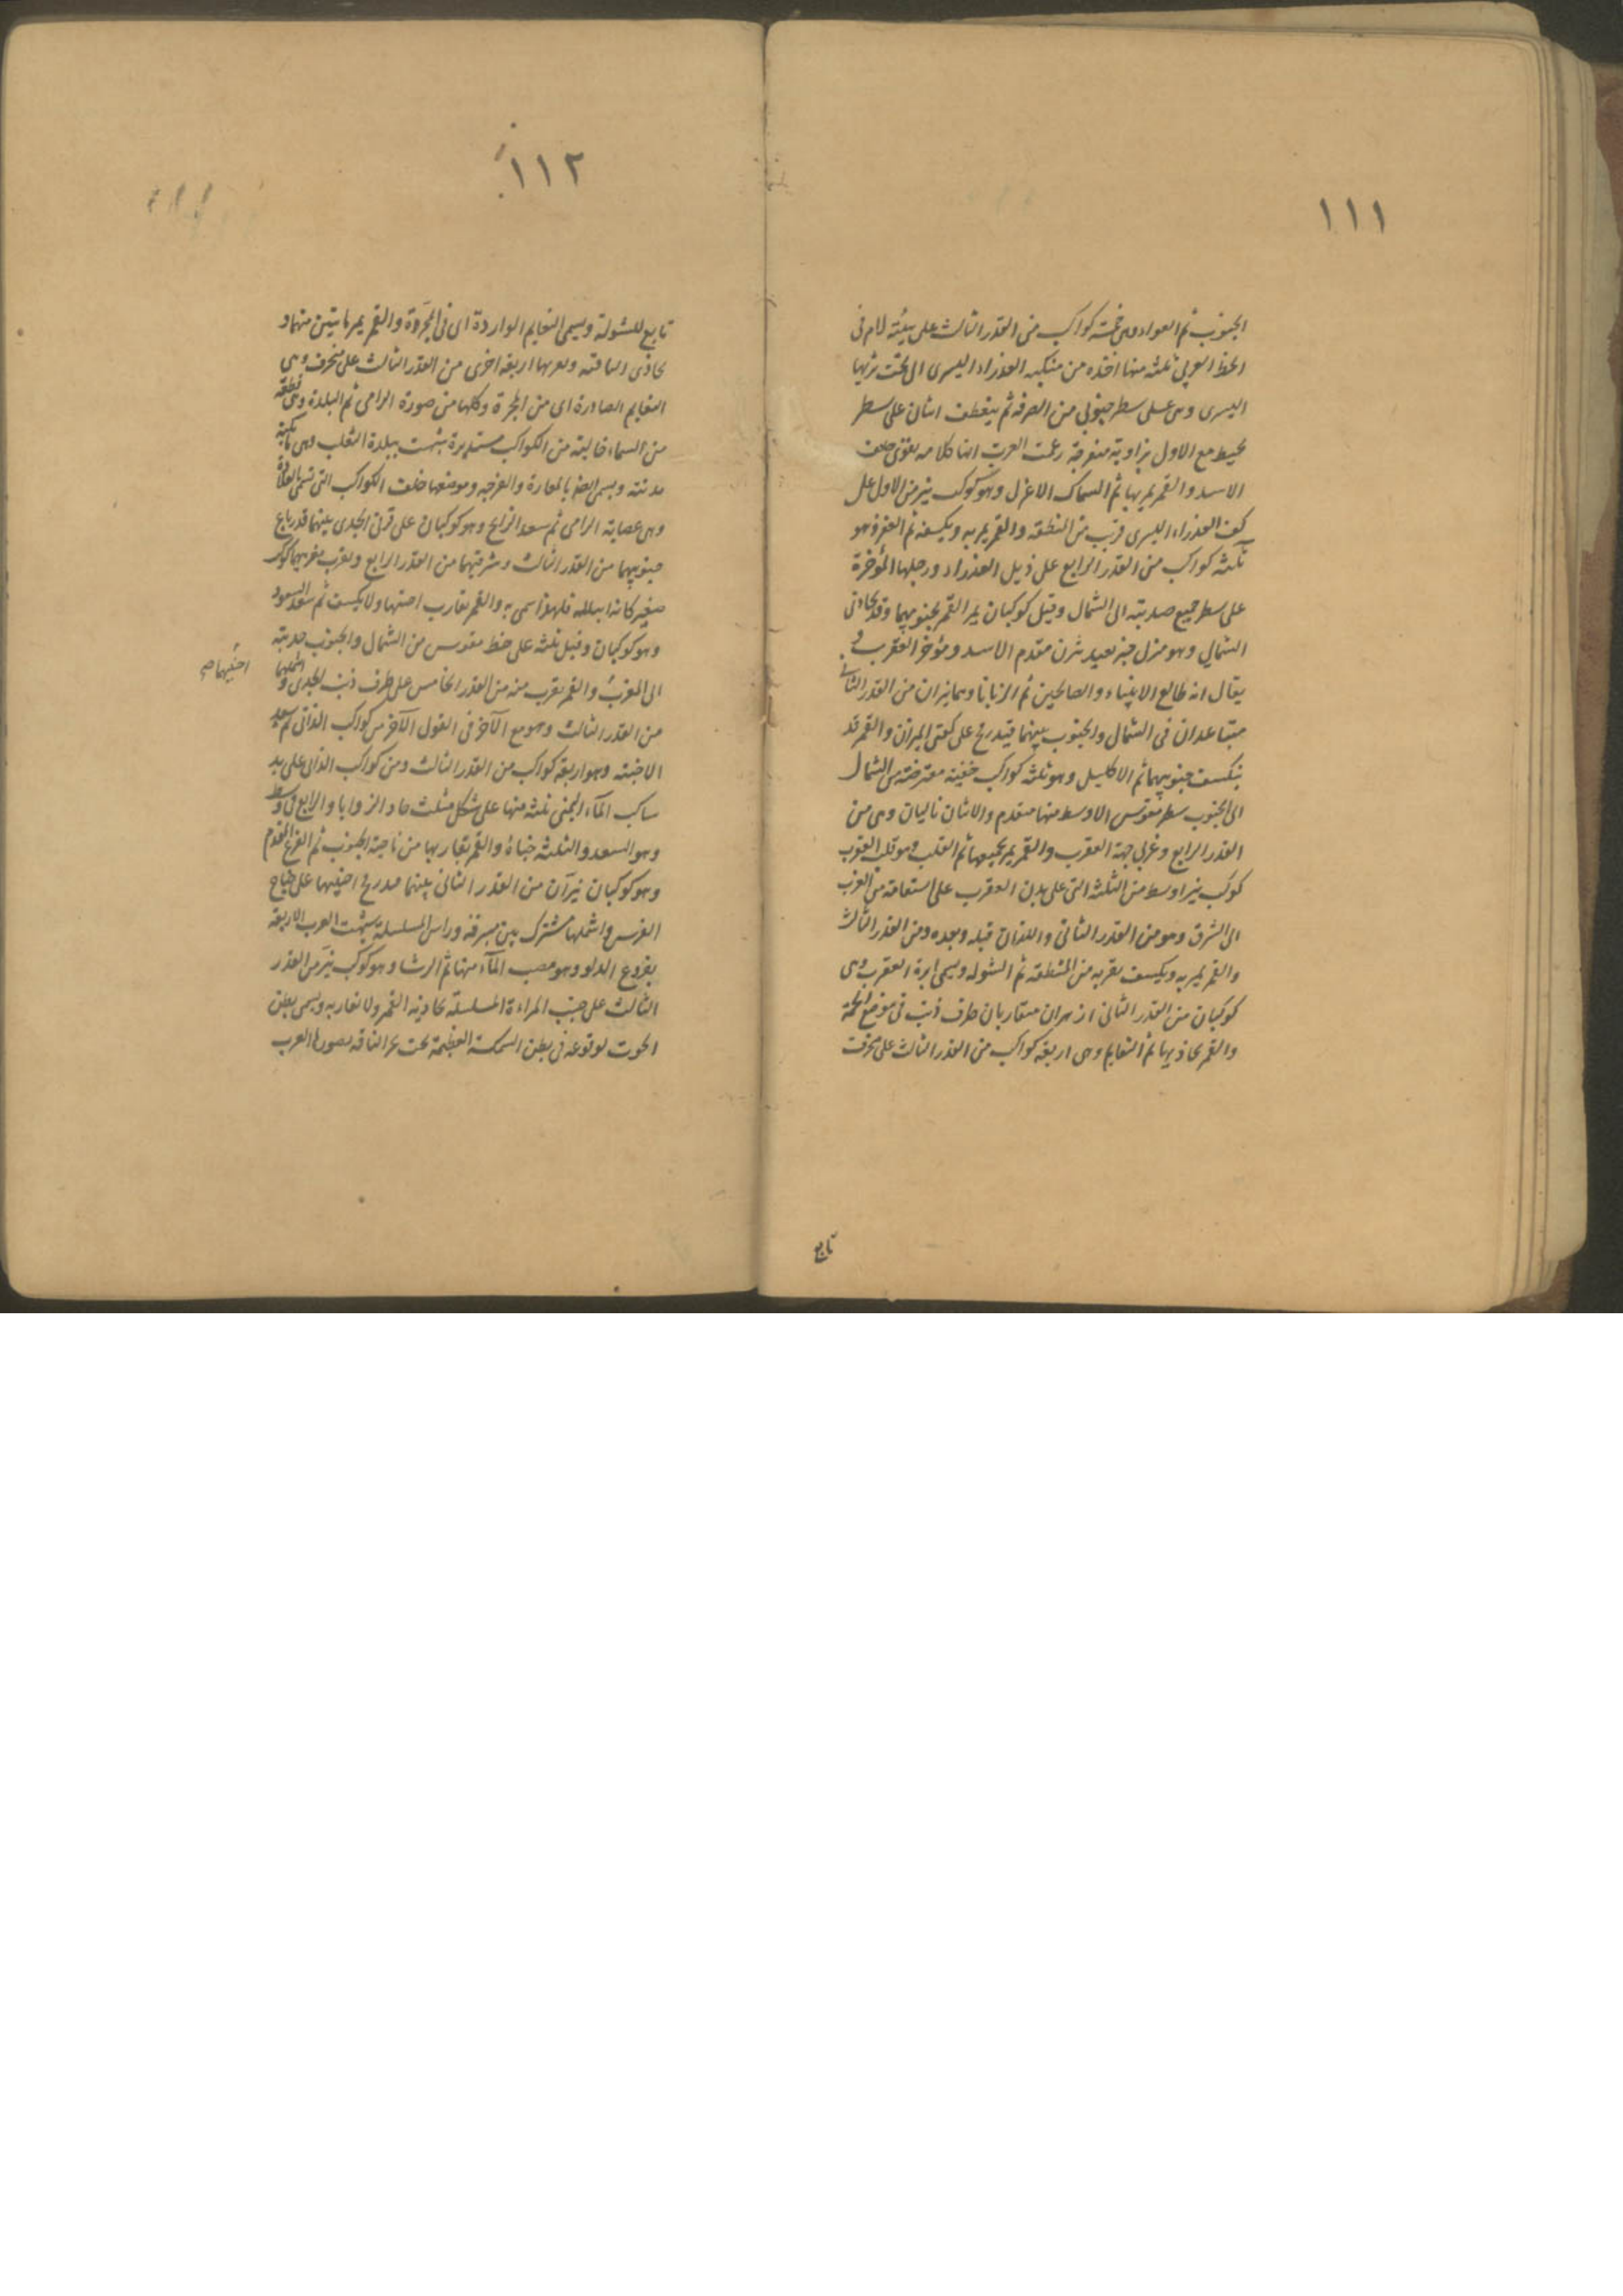 ١١١
الجنوب ثم العواء وهى خمسة كواكب من القدر الثالث على هيئة لام فى
الخط العربى ثلثة منها آخذه من منكبه العذراء اليسرى الى تحت ثديها
اليسرى وهى على سطر جنوبى من الصرفه ثم ينعطف اثنان على سطر
يحيط مع الاول بزاوية منفرجة زعمت العرب انها كلاب يعوى خلف
الاسد والقمر يمر بها ثم السماك الاعزل وهو كوكب نير من الاول على
كف العذراء اليسرى قرب من المنطقه والقمر يمر به ويكسفه ثم الغفر وهو
ثلثه كواكب من القدر الرابع على ذيل العذراء ورجلها المؤخرة
على سطر جميع حدبته الى الشمال وقيل كوكبان يمر القمر بجنوبيهما وقد يحاذى
الشمالى وهو منزل خير بعيد شرن مقدم الاسد ومؤخر العقرب و
يقال انه طالع الانبياء والصالحين ثم الزبانا وهما نيران من القدر الثانى
متباعدان فى الشمال والجنوب بينهما قيد رمح على كفتى الميزان والقمر قد
يكسف جنوبيهما ثم الاكليل وهو ثلثه كواكب خفية معترضة من الشمال
الى الجنوب سطر مقوس الاوسط منها متقدم والاثنان تاليان وهى من
القدر الرابع وغربى جهة العقرب والقمر يمر بجميعها ثم القلب وهو قلب العقرب
كوكب نير اوسط من الثلثة التى على بدن العقرب على استقامة من الغرب
الى الشرق وهو من القدر الثانى واللذان قبله وبعده ومن القدر الثالث
والقمر يمر به ويكسف بقربه من المنطقه ثم الشوله ويسمى ابرة العقرب وهى
كوكبان من القدر الثانى ازهران متقاربان طرف ذنب فى موضع الحمة
والقمر يحاذيهما ثم النعايم وهى اربعة كواكب من القدر الثالث على منحرف
تابع
١١٢
تابع للشولة ويسمى النعايم الواردة اى فى المجرة والقمر يمر باثنين منها و
يحاذى الباقيه وبقربها اربعة اخرى من القدر الثالث على منحرف وهى
النعايم الصادرة اى من المجرة وكلها من صورة الرامى ثم البلدة وهى قطعة
من السماء خالية من الكواكب مستديرة شبهت ببلدة الثعلب وهى ما يكنسه
بذنبه ويسمى ايضا بالمفازة والفرجه وموضعها خلف الكواكب التى تسمى بالقلادة
وهى عصابة الرامى ثم سعد الذابح وهو كوكبان على قرنى الجدى بينهما قدر باع
جنوبيهما من القدر الثالث وشرقيهما من القدر الرابع وبقرب مغربيهما كوكب
صغير كانه ابتلعه فلهذا سمى به والقمر يقارب احدهما ولا يكسف ثم سعد السعود
وهو كوكبان وقيل ثلثه على خط مقوس من الشمال والجنوب حدبته
الى المغرب والقمر بقرب منه من القدر الخامس على طرف ذنب الجدى و اشملهما
اخفيهما صح
من القدر الثالث وهو مع الآخر فى القول الآخر من كواكب الدالى ثم سعد
الاخبيه وهو اربعة كواكب من القدر الثالث ومن كواكب الدالى على يد
ساكب المآء اليمنى ثلثه منها على شكل مثلث حاد الزوايا والرابع فى وسط
وهو السعد والثلثه خباؤه والقمر يقاربها من ناحية الجنوب ثم الفرغ المقدم
وهو كوكبان نيران من القدر الثانى بينهما قيد رمح اخفيهما على جناح
الفرس واشملهما مشترك بين سرته وراس المسلسله شبهت العرب الاربعة
بفروع الدلو وهو مصب المآء منها ثم الرشا وهو كوكب نير من القدر
الثالث على جنب المراءة المسلسلة يحاذيه القمر ولا يقاربه ويسمى بطن
الحوت لوقوعه فى بطن السمكة العظيمة تحت نحر الناقه بصورها العرب